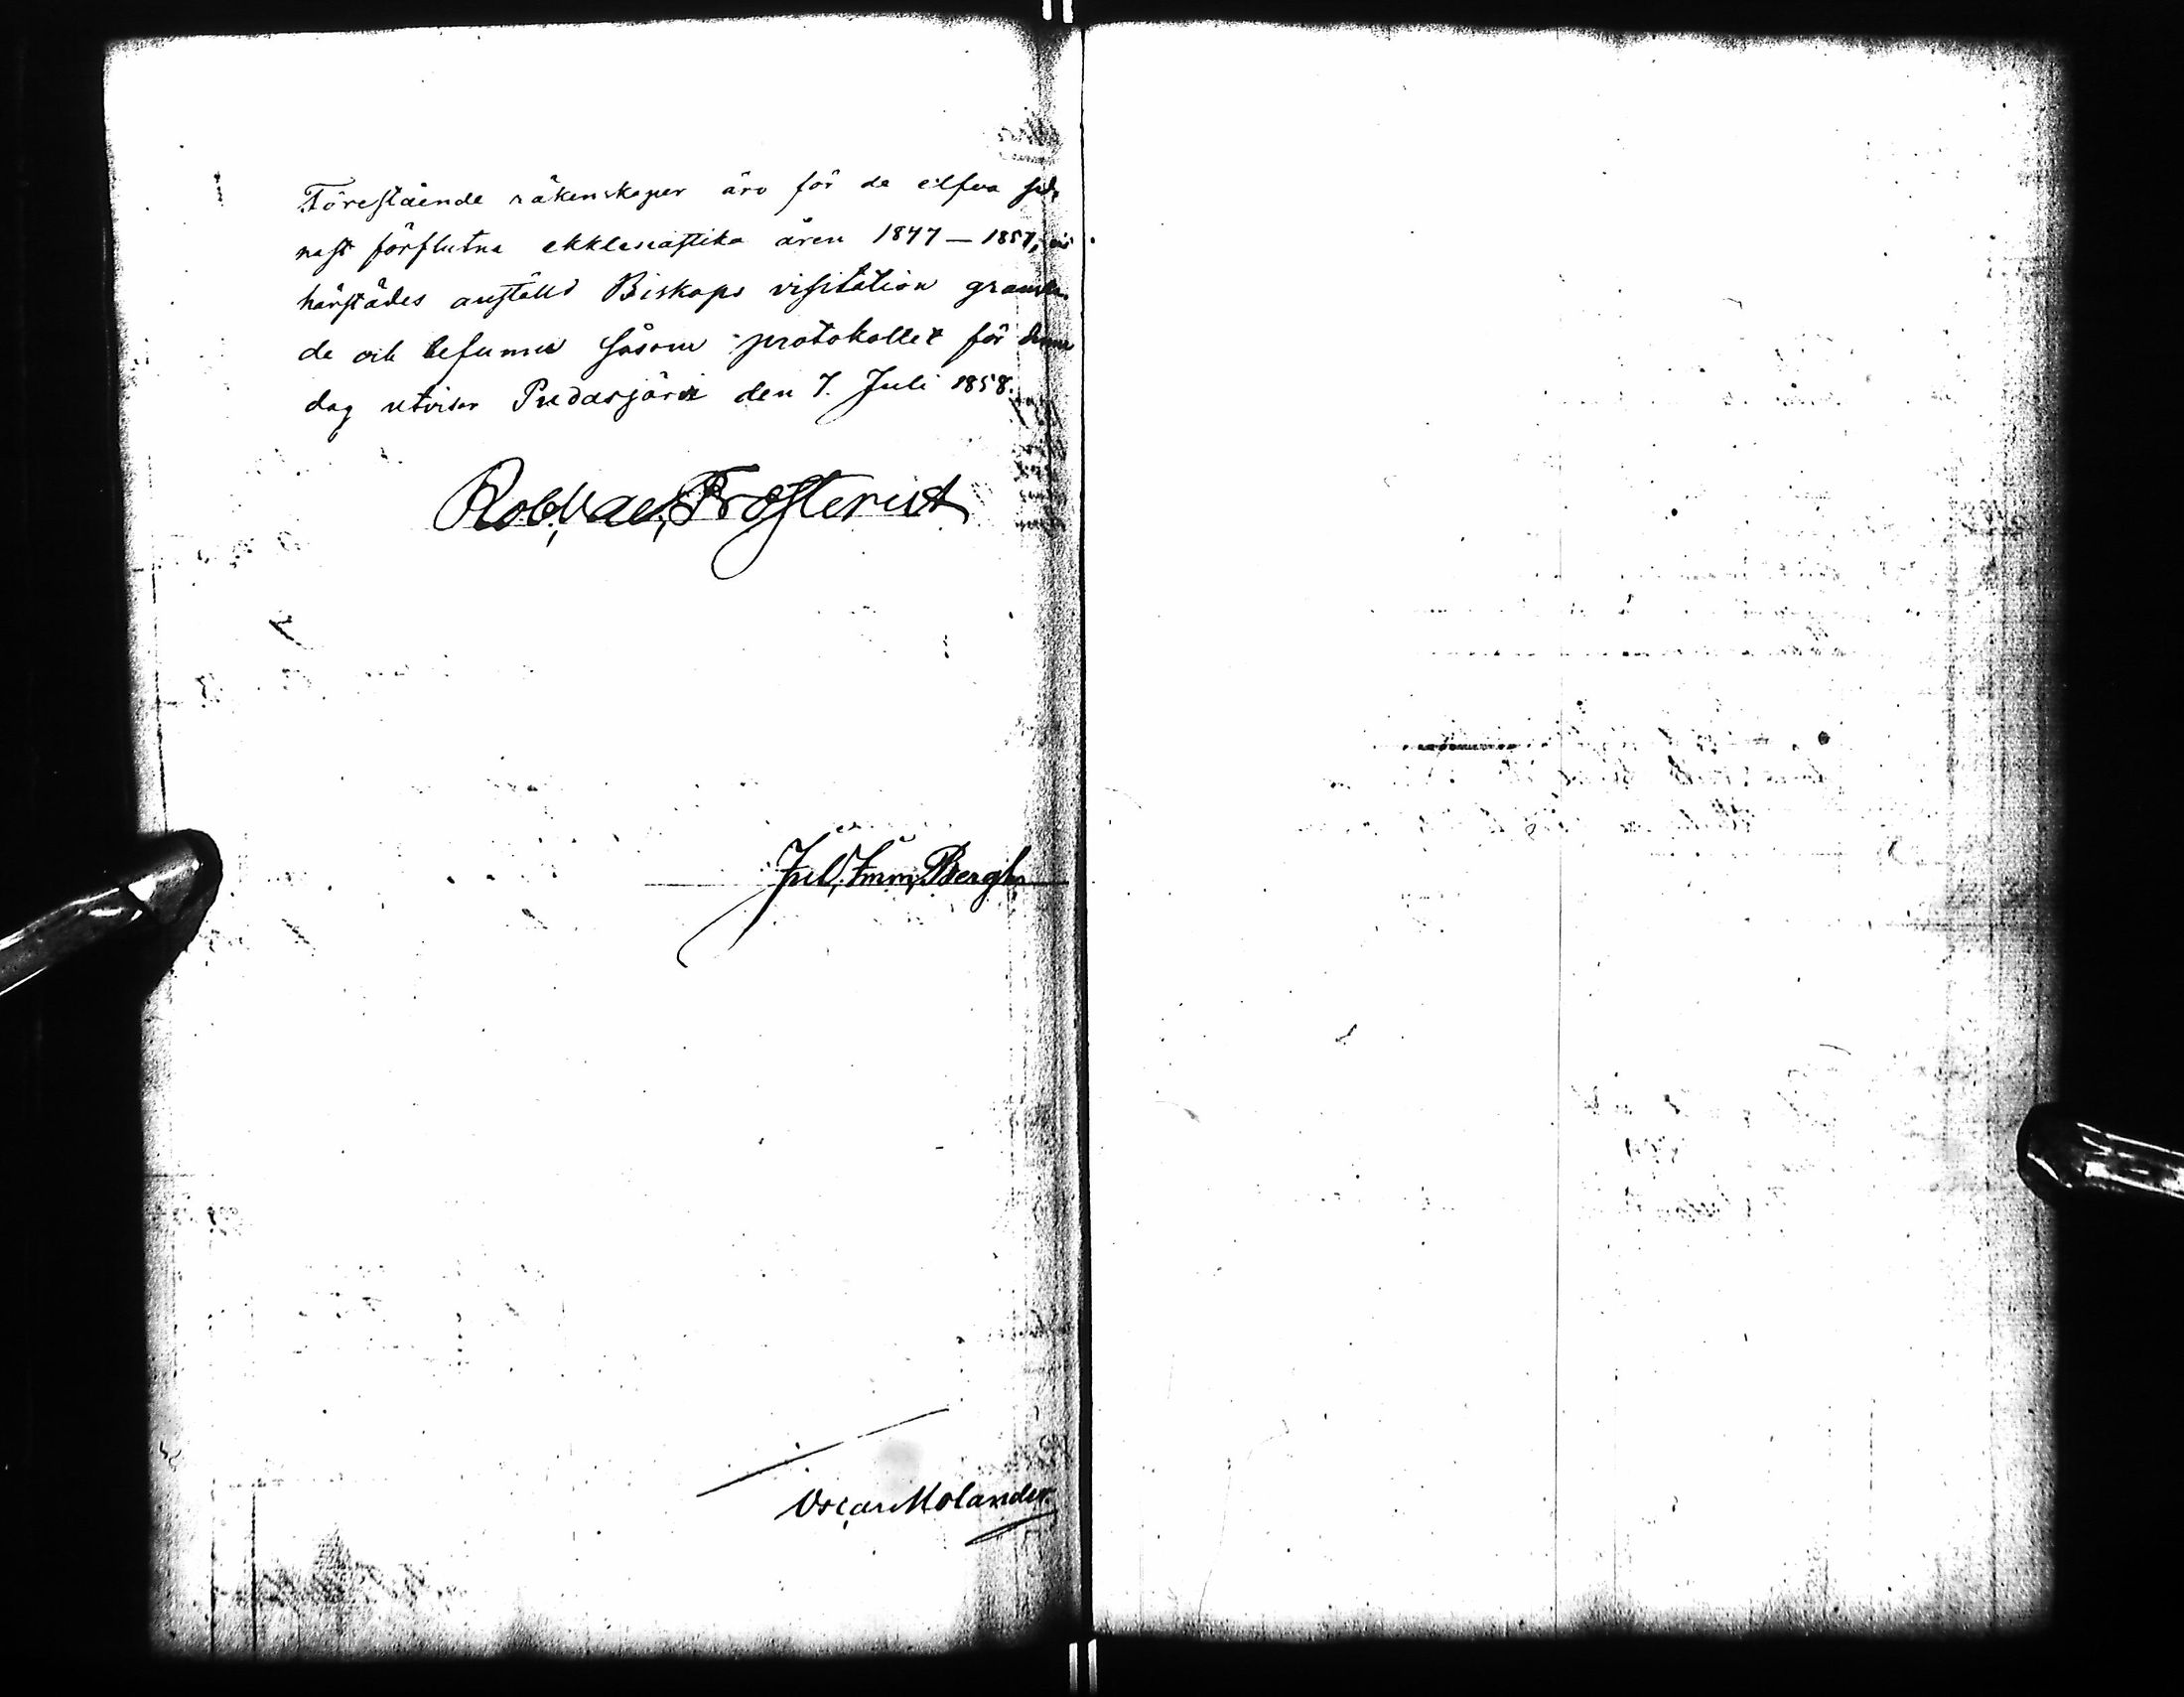 Förestående räkenskaper äro för de elfva sed,
nast förflutna ekklesiastika åren 1847 — 1857, vid
härstädes anställd Biskops visitation granska,
de och befunna såsom protokollet för denna
dag utvisar Pudasjärvi den 7. Juli 1858.
Rob. Val. Frosterus
Jul. Imm. Bergh
Oscar Molander.